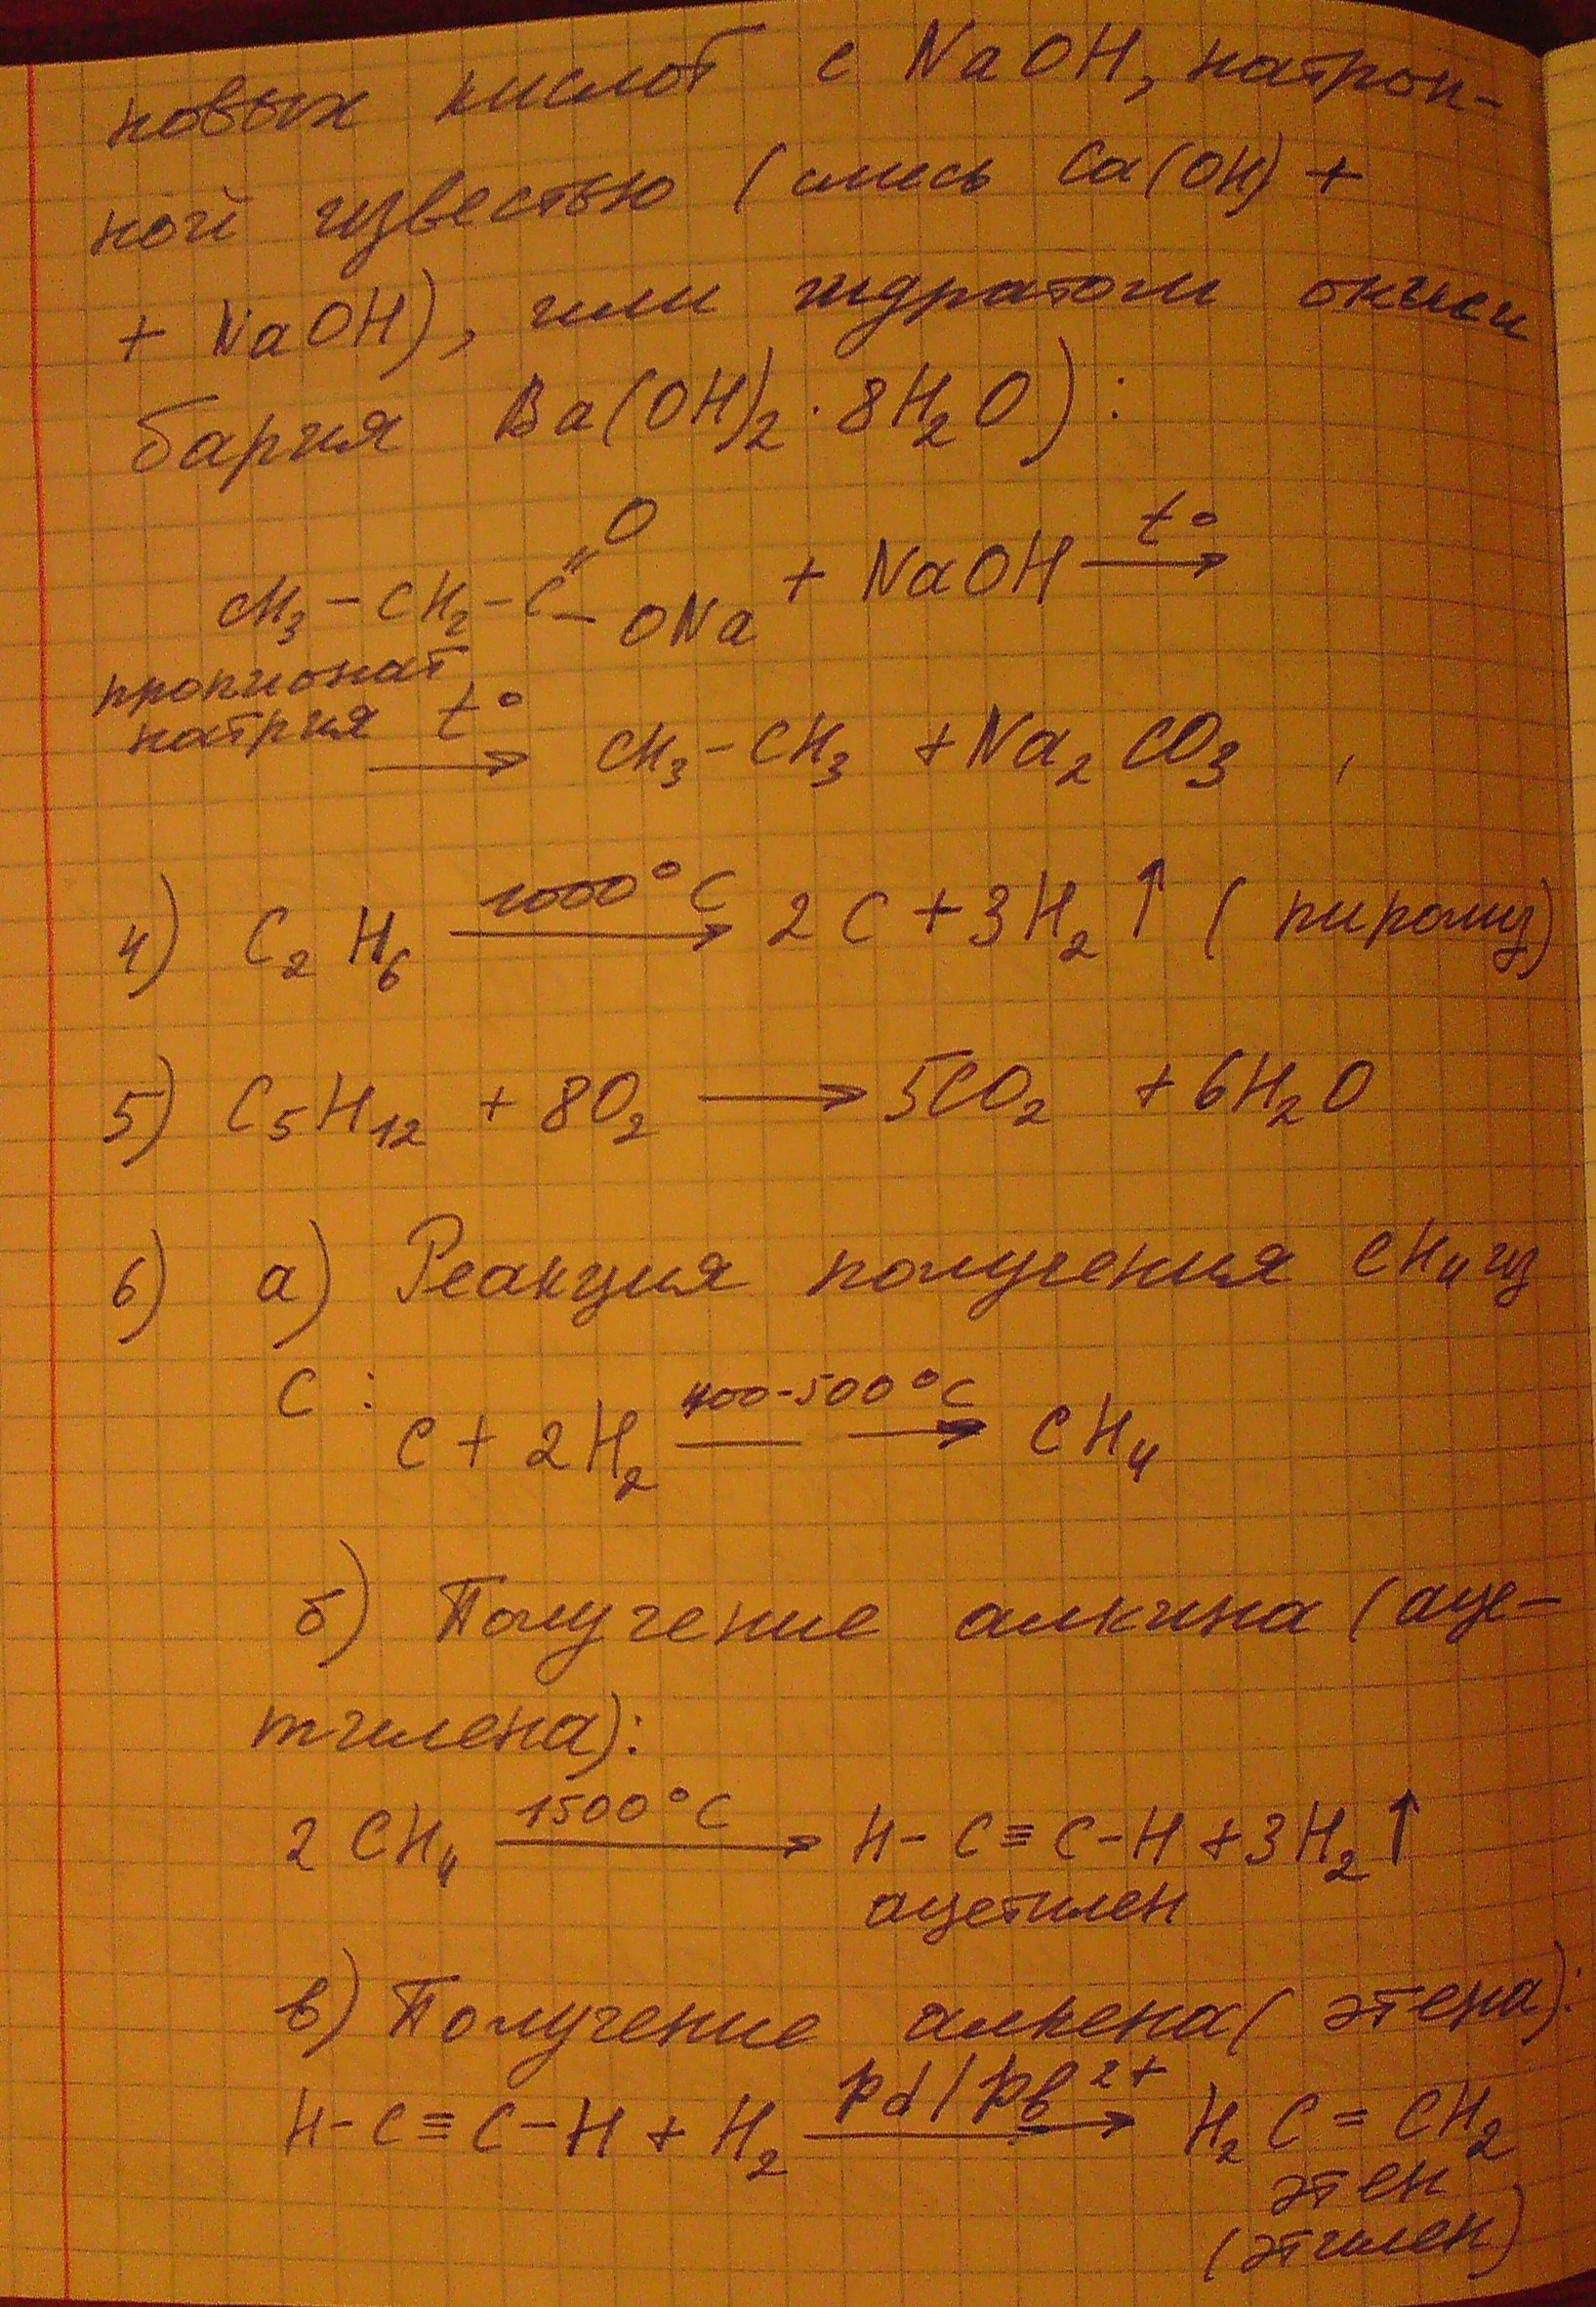 новых кислот с NaOH, натрон-
ной известью (смесь Ca(OH) +
+ NaOH), или гидратом окиси
бария Ba(OH)₂ · 8H₂O):
CH₃ – CH₂ – C
=O
– ONa + NaOH t° →
пропионат
натрия
t° → CH₃ – CH₃ + Na₂CO₃ ,
4) C₂H₆ 1000°C → 2C + 3H₂ ↑ (пиролиз)
5) C₅H₁₂ + 8O₂ → 5CO₂ + 6H₂O
6) а) Реакция получения CH₄ из
C :
C + 2H₂ 400-500°C → CH₄
б) Получение алкина (аце-
тилена):
2 CH₄ 1500°C → H – C ≡ C – H + 3H₂ ↑
ацетилен
в) Получение алкена (этена):
H – C ≡ C – H + H₂ pd/pb²⁺ → H₂C = CH₂
этен
(этилен)